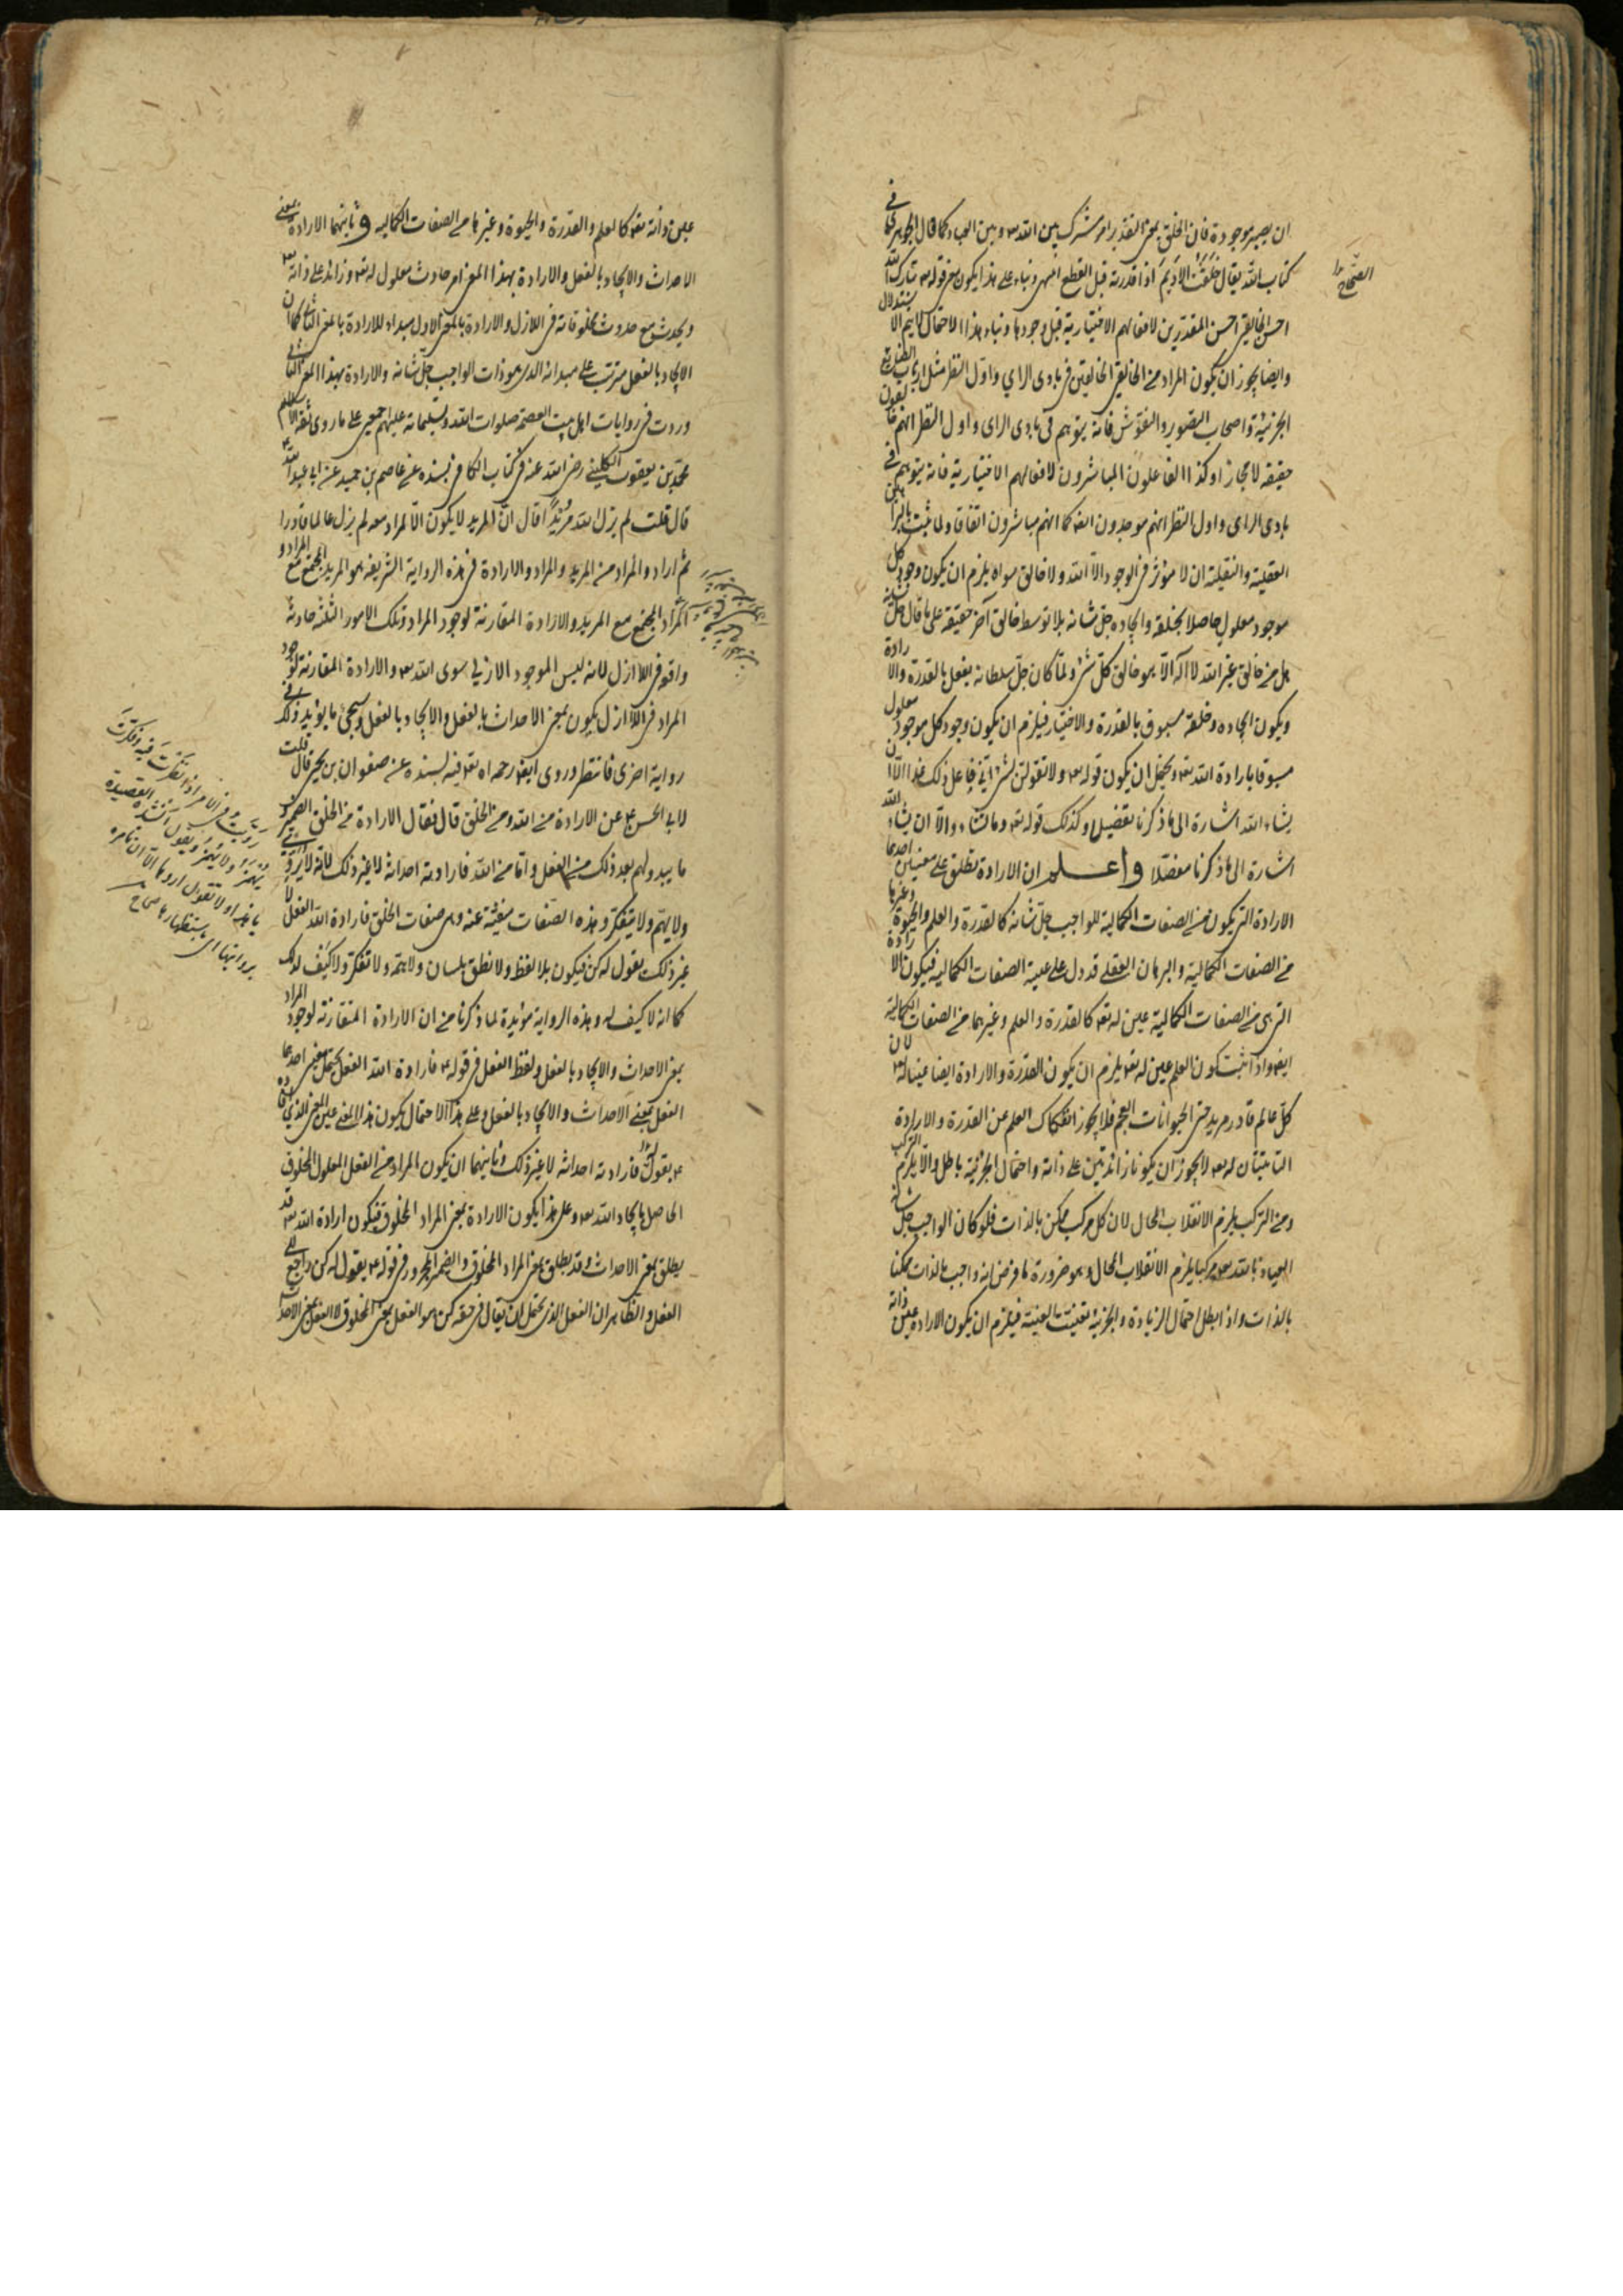 ان يصير موجودة فان الخلق بمعنى التقدير امر مشترك بين الله تعه وبين العباد كما قال الجوهري في
كتاب الصحاح يقال خلقت الاديم اذا قدرته قبل القطع انتهى وبناء على هذا يكون معنى قوله تعه تبارك الله
احسن الخالقين احسن المقدرين لافعالهم الاختيارية قبل وجودها وبناء هذا الاحتمال لا يتم الاستدلال
وايضا يجوز ان يكون المراد من الخالقين الخالقين في بادى الراي واول النظر مثل ارباب الطبايع
الجزئية واصحاب التصوير والنقوش فانه يتوهم في بادى الراى واول النظر انهم خالقون
حقيقة لا مجازا وكذا الفاعلون المباشرون لافعالهم الاختيارية فانه يتوهم في
بادى الراى واول النظر انهم موجدون ايضه كما انهم مباشرون اتفاقا ولما ثبت بالبراهين
العقلية والنقلية ان لا مؤثر في الوجود الا الله ولا خالق سواه يلزم ان يكون وجود كل
موجود معلول حاصلا بخلقه وايجاده جل شانه بلا توسط خالق آخر حقيقة على ما قال جل شانه
هل من خالق غير الله لا اله الا هو خالق كل شئ ولما كان جل سلطانه يفعل بالقدرة والارادة
ويكون ايجاده وخلقه مسبوق بالقدرة والاختيار فيلزم ان يكون وجود كل موجود معلول
مسبوقا بارادة الله تعه ويحتمل ان يكون قوله تعه ولا تقولن لشئ اني فاعل ذلك غدا الا ان
يشاء الله اشارة الى ما ذكرنا تفصيلا وكذلك قوله تعه وما تشاءون الا ان يشاء الله
اشارة الى ما ذكرنا مفصلا واعلم ان الارادة تطلق على معنيين احدهما
الارادة التى يكون من الصفات الكمالية للواجب جل شانه كالقدرة والعلم والحيوة وغيرها
من الصفات الكمالية والبرهان العقلى قد دل على عينية الصفات الكمالية فيكون الارادة
التى هى من الصفات الكمالية عين له تعه كالقدرة والعلم وغيرهما من الصفات الكمالية
ايضه واذا ثبت كون العلم عين له تعه يلزم ان يكون القدرة والارادة ايضا عينا له تعه لان
كل عالم قادر مريد حتى الحيوانات العجم فلا يجوز انفكاك العلم عن القدرة والارادة
الثابتتان له تعه لا يجوز ان يكونا زائدتين على ذاته واحتمال الجزئية باطل والا يلزم التركب
ومن التركب يلزم الانقلاب المحال لان كل مركب ممكن بالذات فلو كان الواجب جل شانه
العياذ بالله تعه مركبا يلزم الانقلاب المحال وهو ضرورة ما فرض انه واجب بالذات ممكنا
بالذات واذا بطل احتمال الزيادة والجزئية تعينت العينية فيلزم ان يكون الارادة عين ذاته
الصحاح
عين ذاته تعه كالعلم والقدرة والحيوة وغيرها من الصفات الكماليه وثانيهما الارادة بمعنى
الاحداث والايجاد بالفعل والارادة بهذا المعنى امر حادث معلول له تعه وزائد على ذاته تعه
ويحدث مع حدوث مخلوقاته فى اللازل والارادة بالمعنى الاول مبداء للارادة بالمعنى الثانى كما ان
الايجاد بالفعل مترتب على مبدائه الذى هو ذات الواجب جل شانه والارادة بهذا المعنى الثانى
وردت فى روايات اهل بيت العصمة صلوات الله وتسليماته عليهم اجمعين على ما روى ثقة الاسلام
محمد بن يعقوب الكلينى رضى الله عنه فى كتاب الكافى بسنده عن عاصم بن حميد عن ابى عبد الله ع
قال قلت لم يزل الله مريدا قال ان المريد لا يكون الا لمراد معه لم يزل عالما قادرا
ثم اراد والمراد من المريد والمراد والارادة فى هذه الرواية الشريفة هو المريد المجتمع مع المراد و
المراد المجتمع مع المريد والارادة المقارنة لوجود المراد وتلك الامور الثلثة حادثة
واقع فى اللاازل لانه ليس الموجود الازلى سوى الله تعه والارادة المقارنة لوجود
المراد فى اللاازل يكون بمعنى الاحداث بالفعل والايجاد بالفعل وسيجئ ما يؤيد ذلك فى
رواية اخرى فانتظر وروى ايضه رحمه اه تعه فيه بسنده عن صفوان بن يحيى قال قلت
لابى الحسن ع عن الارادة من الله ومن الخلق قال فقال الارادة من الخلق الضمير و
ما يبدو لهم بعد ذلك من الفعل واما من الله فارادته احداثه لا غير ذلك لانه لا يروى
ولا يهم ولا يتفكر وهذه الصفات منفية عنه وهى صفات الخلق فارادة الله الفعل لا
غير ذلك يقول له كن فيكون بلا لفظ ولا نطق بلسان ولا همة ولا تفكر ولا كيف لذلك
كما انه لا كيف له وهذه الرواية مؤيدة لما ذكرنا من ان الارادة المتقارنة لوجود المراد
بمعنى الاحداث والايجاد بالفعل ولفظ الفعل فى قوله ع فارادة الله الفعل يحتمل معنيين احدهما
الفعل بمعنى الاحداث والايجاد بالفعل وعلى هذا الاحتمال يكون هذا المعنى عين المعنى الذى افاده
ع بقوله فارادته احداثه لا غير ذلك وثانيهما ان يكون المراد من الفعل المعلول المخلوق
الحاصل بايجاد الله تعه وعلى هذا يكون الارادة بمعنى المراد المخلوق فيكون ارادة الله تعه قد
يطلق بمعنى الاحداث وقد يطلق بمعنى المراد المخلوق والضمير المجرور فى قوله ع يقول له كن راجع الى
الفعل والظاهر ان الفعل الذى يحتمل ان يقال فى حقه كن هو الفعل بمعنى المخلوق لا الفعل بمعنى الاحداث
رويت فى الامر اذا نظرت فيه وفكرت
يهمز ولا يهمز ويقول انشد القصيدة
يا هذا ولا تقول اروها الا ان تامره
بروايتها اى باستظهارها صحاح